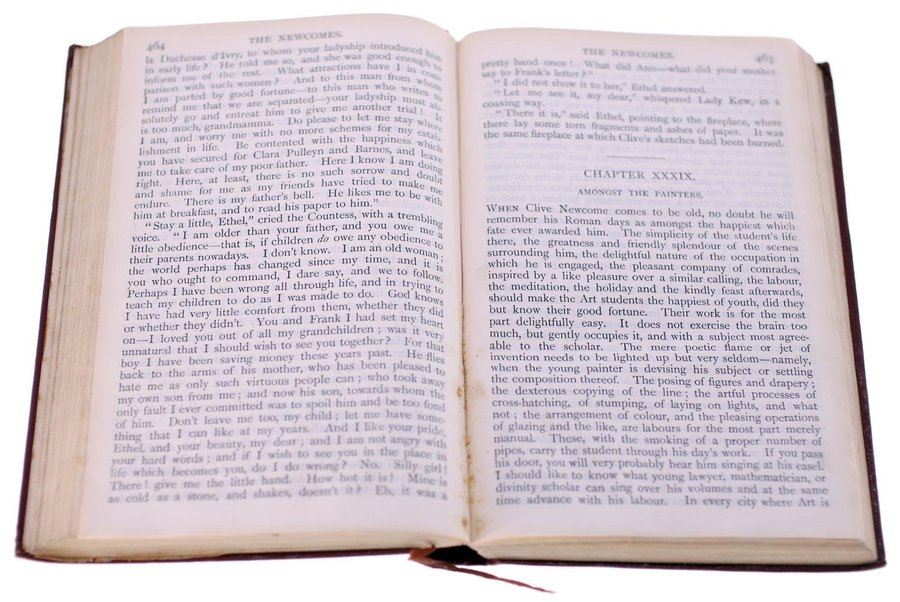 464
THE NEWCOMES.
la Duchesse d'Ivry, to whom your ladyship introduced him
in early life? He told me so, and she was good enough to
inform me of the rest. What attractions have I in com-
parison with such women? And to this man from whom
I am parted by good fortune—to this man who writes to
remind me that we are separated—your ladyship must ab-
solutely go and entreat him to give me another trial! It
is too much, grandmamma. Do please to let me stay where
I am, and worry me with no more schemes for my estab-
lishment in life. Be contented with the happiness which
you have secured for Clara Pulleyn and Barnes, and leave
me to take care of my poor father. Here I know I am doing
right. Here, at least, there is no such sorrow and doubt
and shame for me as my friends have tried to make me
endure. There is my father's bell. He likes me to be with
him at breakfast, and to read his paper to him."
"Stay a little, Ethel," cried the Countess, with a trembling
voice. "I am older than your father, and you owe me a
little obedience—that is, if children do owe any obedience to
their parents nowadays. I don't know. I am an old woman;
the world perhaps has changed since my time, and it is
you who ought to command, I dare say, and we to follow.
Perhaps I have been wrong all through life, and in trying to
teach my children to do as I was made to do. God knows
I have had very little comfort from them, whether they did
or whether they didn't. You and Frank I had set my heart
on—I loved you out of all my grandchildren; was it very
unnatural that I should wish to see you together? For that
boy I have been saving money these years past. He flies
back to the arms of his mother, who has been pleased to
hate me as only such virtuous people can; who took away
my own son from me; and now his son, towards whom the
only fault I ever committed was to spoil him and be too fond
of him. Don't leave me too, my child; let me have some-
thing that I can like at my years. And I like your pride,
Ethel, and your beauty, my dear; and I am not angry with
your hard words; and if I wish to see you in the place in
life which becomes you, do I do wrong? No. Silly girl!
There! give me the little hand. How hot it is! Mine is
as cold as a stone, and shakes, doesn't it? Eh, it was a
THE NEWCOMES.
465
pretty hand once! What did Ann—what did your mother
say to Frank's letter?"
"I did not show it to her," Ethel answered.
"Let me see it, my dear," whispered Lady Kew, in a
coaxing way.
"There it is," said Ethel, pointing to the fireplace, where
there lay some torn fragments and ashes of paper. It was
the same fireplace at which Clive's sketches had been burned.
CHAPTER XXXIX.
AMONGST THE PAINTERS.
WHEN Clive Newcome comes to be old, no doubt he will
remember his Roman days as amongst the happiest which
fate ever awarded him. The simplicity of the student's life
there, the greatness and friendly splendour of the scenes
surrounding him, the delightful nature of the occupation in
which he is engaged, the pleasant company of comrades,
inspired by a like pleasure over a similar calling, the labour,
the meditation, the holiday and the kindly feast afterwards,
should make the Art students the happiest of youth, did they
but know their good fortune. Their work is for the most
part delightfully easy. It does not exercise the brain too
much, but gently occupies it, and with a subject most agree-
able to the scholar. The mere poetic flame or jet of
invention needs to be lighted up but very seldom—namely,
when the young painter is devising his subject or settling
the composition thereof. The posing of figures and drapery;
the dexterous copying of the line; the artful processes of
cross-hatching, of stumping, of laying on lights, and what
not; the arrangement of colour, and the pleasing operations
of glazing and the like, are labours for the most part merely
manual. These, with the smoking of a proper number of
pipes, carry the student through his day's work. If you pass
his door, you will very probably hear him singing at his easel.
I should like to know what young lawyer, mathematician, or
divinity scholar can sing over his volumes and at the same
time advance with his labour. In every city where Art is